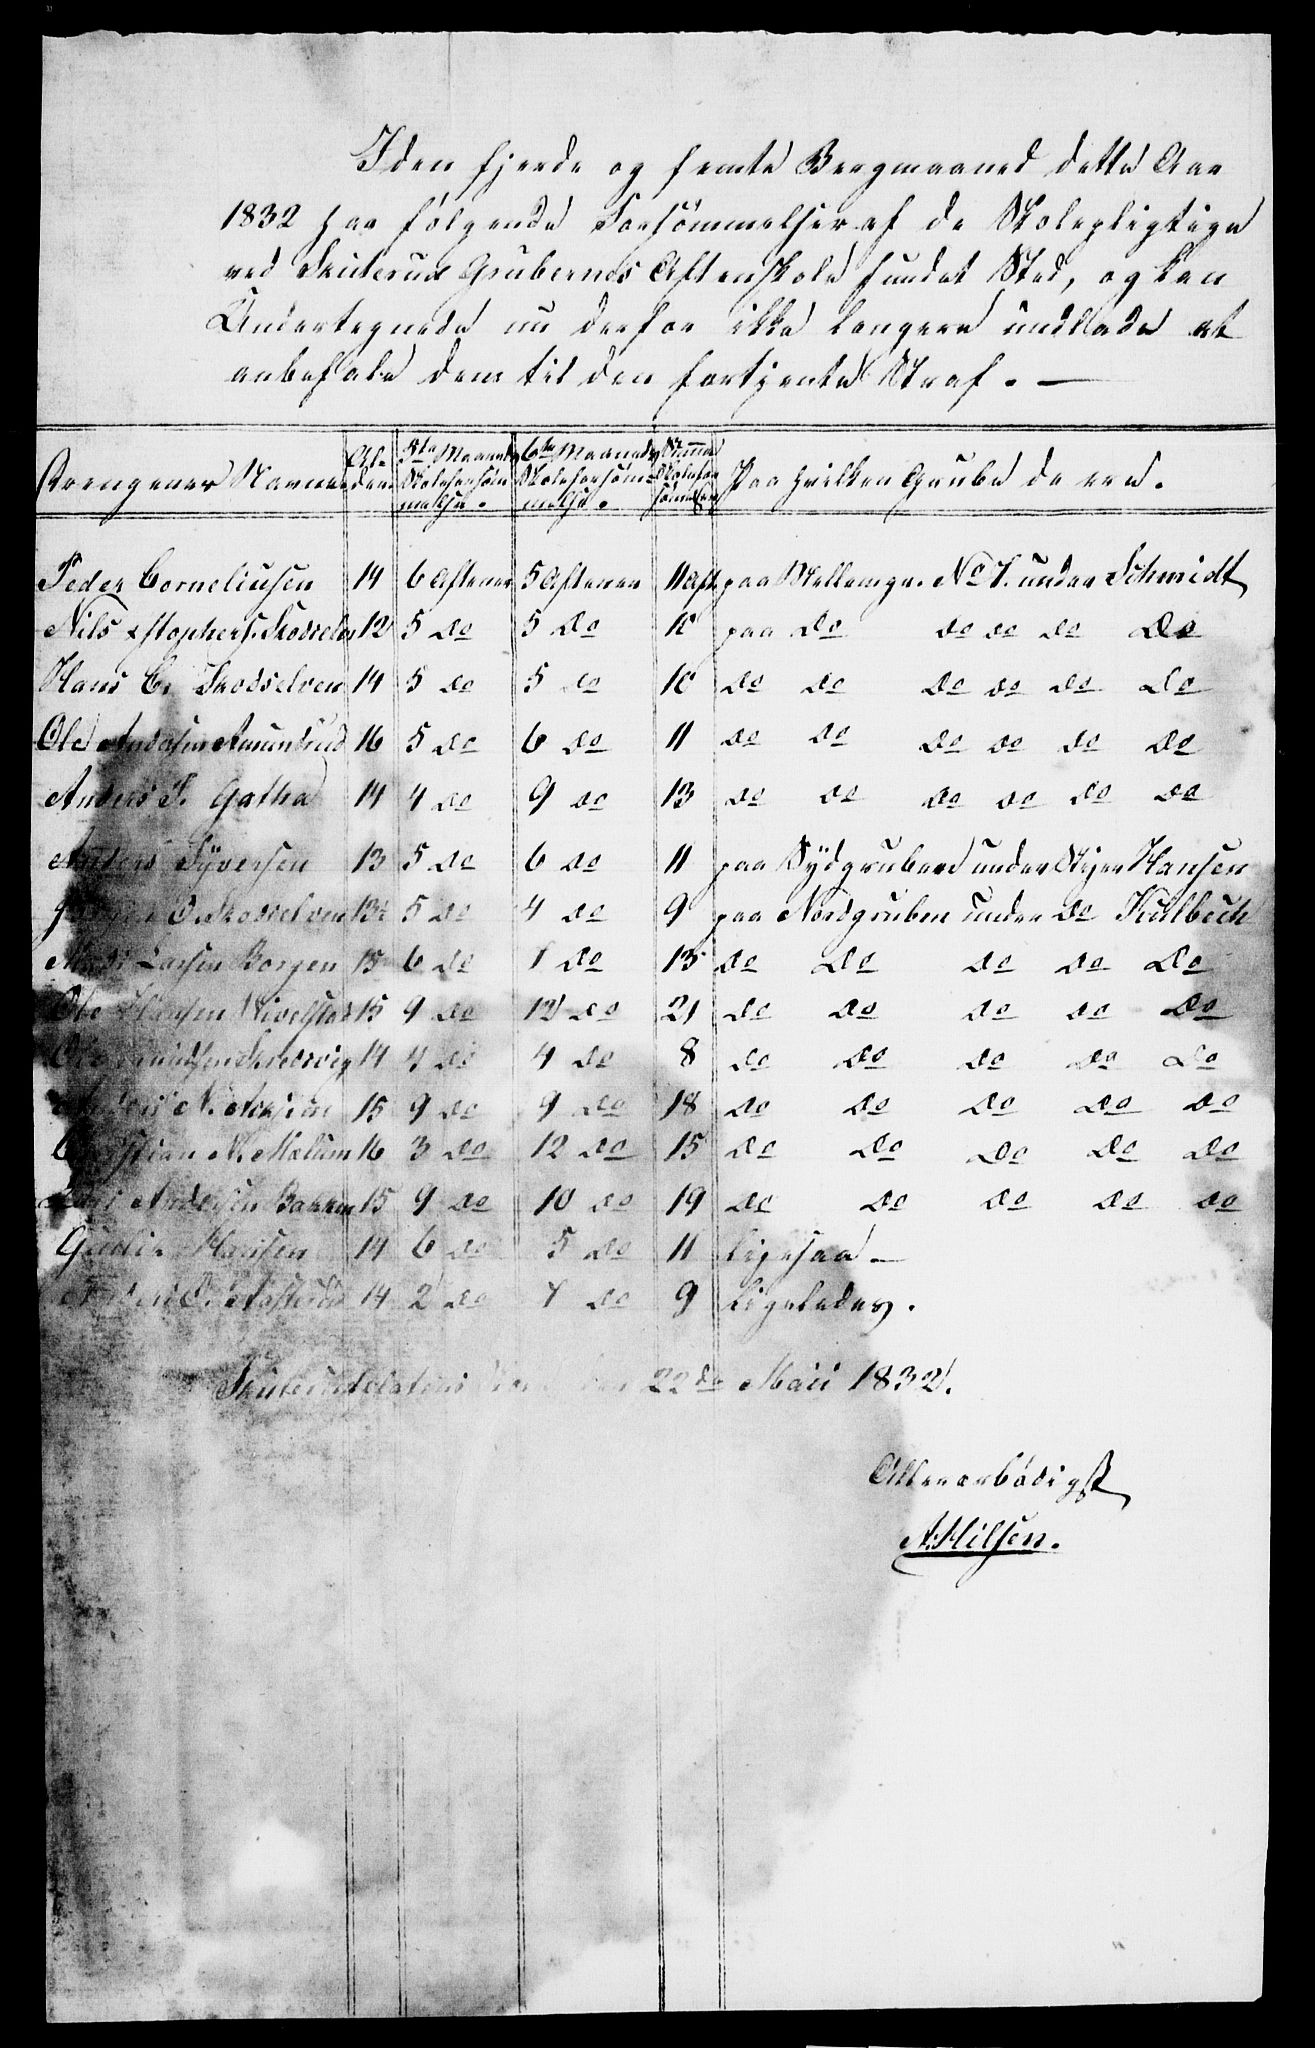 I den fjerde og femte Bergmaaned dette Aar
1832 har følgende Forsømmelser af de Skolepligtige
ved Skuterud Grubernes Aftenskole fundet Sted, og kan
Undertegnede nu derfor ikke længere undlade at
anbefale dem til den fortjente Straf. —
Drengenes Navne Alderen 5te Maaneds Skoleforsømmelse. 6te Maaneds Skoleforsømmelse. Summa Skoleforsømmelser På hvilken Grube de ere.
Peder Corneliusen 14 6 Aftener 5 Aftener 11 Aft. paa Mellemgr. No 1. under Schmidt
Nils Xstophers. Skodselv 12 5 do 5 do 10 paa do do do do do
Hans C. Skodselven 14 5 do 5 do 10 do do do do do do
Ole Andersen Amundrud 16 5 do 6 do 11 do do do do do do
Anders P. Gatha 14 4 do 9 do 13 do do do do do do
Anders Syversen 13 5 do 6 do 11 paa Sydgruben under Stiger Hansen
O. Skodselven 13½ 5 do 4 do 9 paa Nordgruben under do Kulbech
Mads Larsen Borgen 15 6 do 7 do 13 do do do do do
Ole Hansen 15 9 do 12 do 21 do do do do do
Ole Skredsvig 14 4 do 4 do 8 do do do do do
Anders N. 15 9 do 9 do 18 do do do do do
Christian N. Mælum 16 3 do 12 do 15 do do do do do
Lars Andersen Bakken 15 9 do 10 do 19 do do do do do
Hansen 14 6 do 5 do 11 ligesaa —
O. 14 2 do 7 do 9 ligeledes.
den 22de Maii 1832.
Allerærbødigst
A. Nilsen.